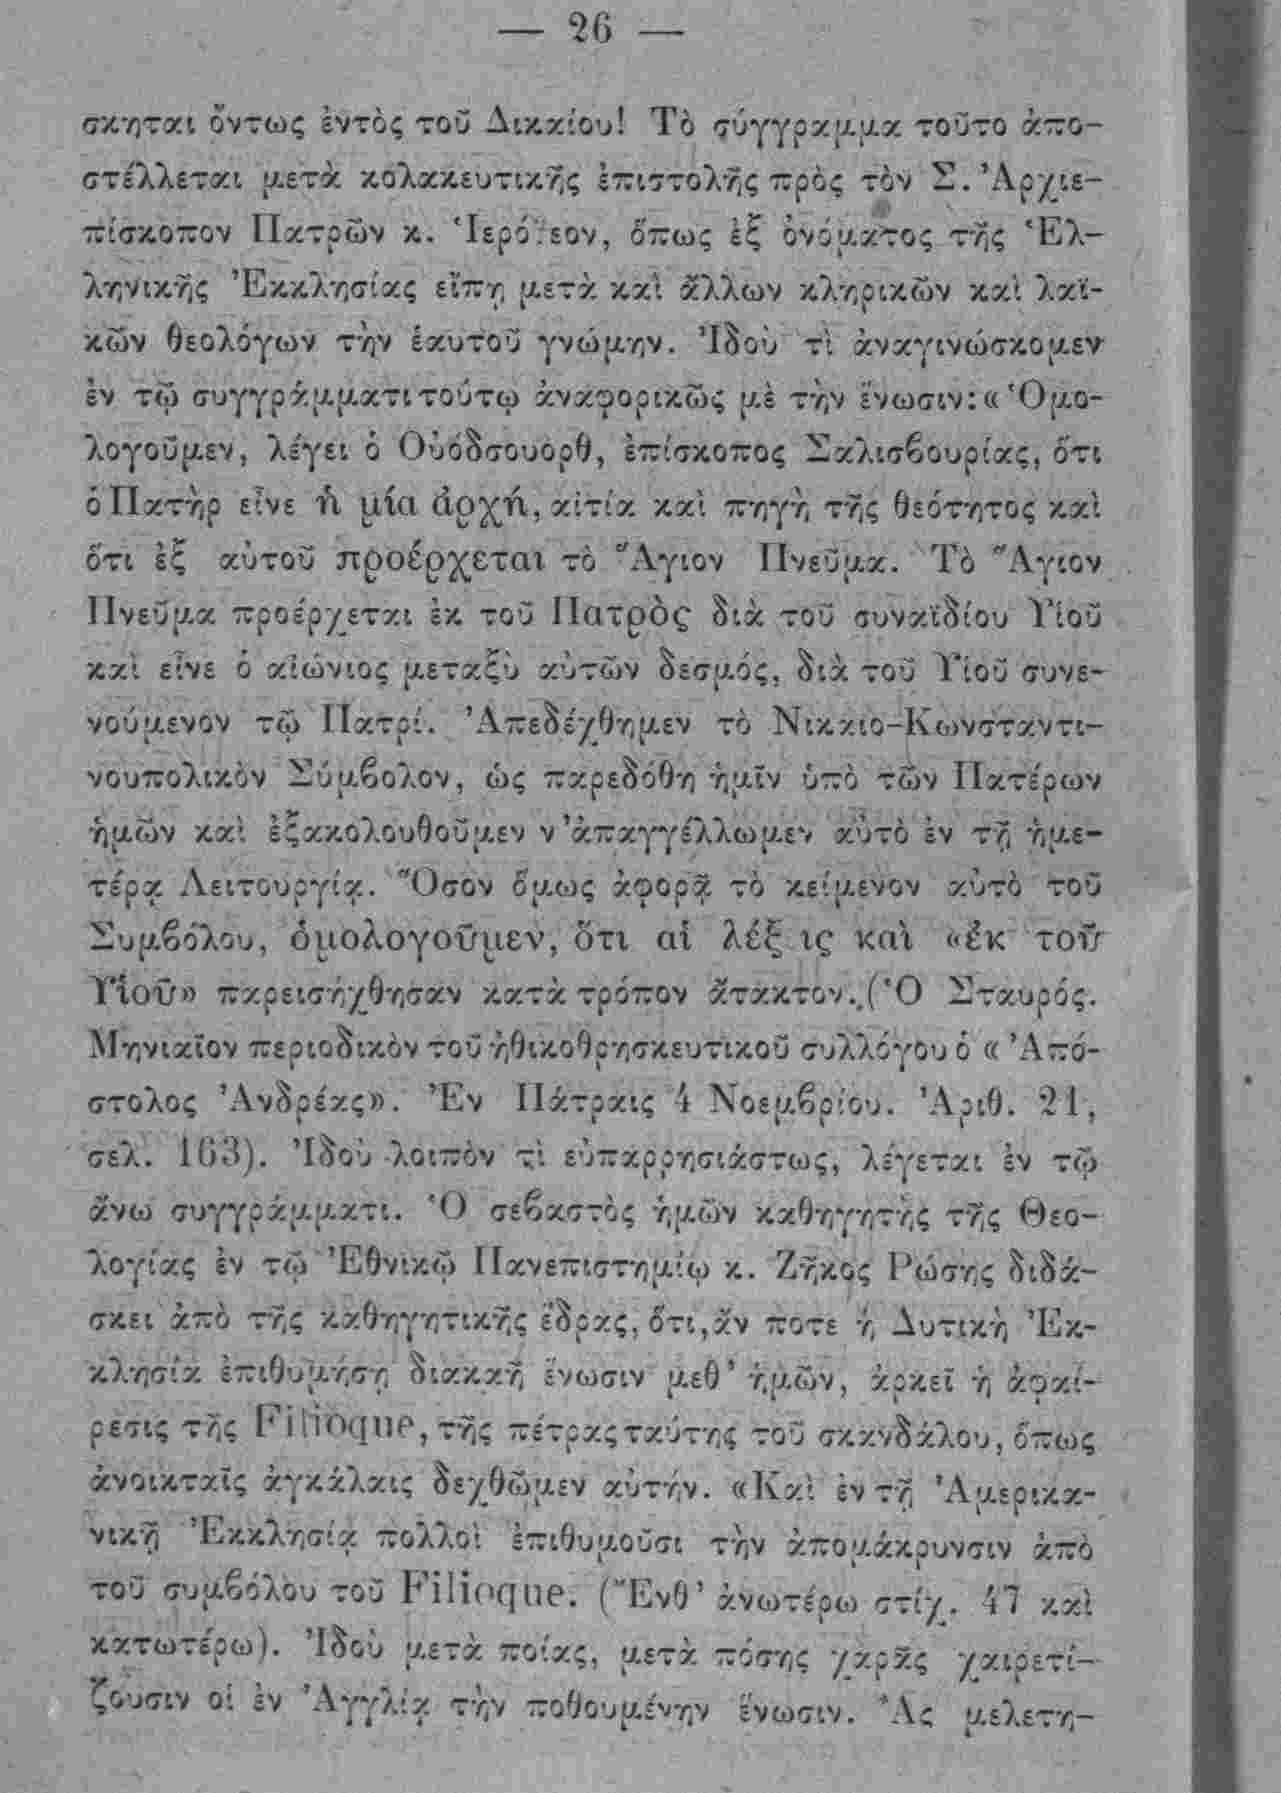 — 26 —
σκηται ὄντως ἐντὸς τοῦ Δικαίου! Τὸ σύγγραμμα τοῦτο ἀπο-
στέλλεται μετὰ κολακευτικῆς ἐπιστολῆς πρὸς τὸν Σ. Ἀρχιε-
πίσκοπον Πατρῶν κ. Ἱερόθεον, ὅπως ἐξ ὀνόματος τῆς Ἑλ-
ληνικῆς Ἐκκλησίας εἴπῃ μετὰ καὶ ἄλλων κληρικῶν καὶ λαϊ-
κῶν θεολόγων τὴν ἑαυτοῦ γνώμην. Ἰδοὺ τὶ ἀναγινώσκομεν
ἐν τῷ συγγράμματι τούτῳ ἀναφορικῶς μὲ τὴν ἕνωσιν: « Ὁμο-
λογοῦμεν, λέγει ὁ Οὐόδσουορθ, ἐπίσκοπος Σαλισβουρίας, ὅτι
ὁ Πατὴρ εἶνε ἡ μία ἀρχή, αἰτία καὶ πηγὴ τῆς θεότητος καὶ
ὅτι ἐξ αὐτοῦ προέρχεται τὸ Ἅγιον Πνεῦμα. Τὸ Ἅγιον
Πνεῦμα προέρχεται ἐκ τοῦ Πατρὸς διὰ τοῦ συναϊδίου Υἱοῦ
καὶ εἶνε ὁ αἰώνιος μεταξὺ αὐτῶν δεσμός, διὰ τοῦ Υἱοῦ συνε-
νούμενον τῷ Πατρί. Ἀπεδέχθημεν τὸ Νικαιο-Κωνσταντι-
νουπολικὸν Σύμβολον, ὡς παρεδόθη ἡμῖν ὑπὸ τῶν Πατέρων
ἡμῶν καὶ ἐξακολουθοῦμεν ν' ἀπαγγέλλωμεν αὐτὸ ἐν τῇ ἡμε-
τέρᾳ Λειτουργίᾳ. Ὅσον ὅμως ἀφορᾷ τὸ κείμενον αὐτὸ τοῦ
Συμβόλου, ὁμολογοῦμεν, ὅτι αἱ λέξ ις καὶ «ἐκ τοῦ
Υἱοῦ» παρεισήχθησαν κατὰ τρόπον ἄτακτον. (Ὁ Σταυρός.
Μηνιαῖον περιοδικὸν τοῦ ἠθικοθρησκευτικοῦ συλλόγου ὁ « Ἀπό-
στολος Ἀνδρέας». Ἐν Πάτραις 4 Νοεμβρίου. Ἀριθ. 21,
σελ. 163). Ἰδοὺ λοιπὸν τὶ εὐπαρρησιάστως, λέγεται ἐν τῷ
ἄνω συγγράμματι. Ὁ σεβαστὸς ἡμῶν καθηγητὴς τῆς Θεο-
λογίας ἐν τῷ Ἐθνικῷ Πανεπιστημίῳ κ. Ζῆκος Ρώσης διδά-
σκει ἀπὸ τῆς καθηγητικῆς ἕδρας, ὅτι, ἄν ποτε ἡ Δυτικὴ Ἐκ-
κλησία ἐπιθυμήσῃ διακαῆ ἕνωσιν μεθ' ἡμῶν, ἀρκεῖ ἡ ἀφαί-
ρεσις τῆς Filioque, τῆς πέτρας ταύτης τοῦ σκανδάλου, ὅπως
ἀνοικταῖς ἀγκάλαις δεχθῶμεν αὐτήν. «Καὶ ἐν τῇ Ἀμερικα-
νικῇ Ἐκκλησίᾳ πολλοὶ ἐπιθυμοῦσι τὴν ἀπομάκρυνσιν ἀπὸ
τοῦ συμβόλου τοῦ Filioque. (Ἔνθ' ἀνωτέρω στίχ. 47 καὶ
κατωτέρω). Ἰδοὺ μετὰ ποίας, μετὰ πόσης χαρᾶς χαιρετί-
ζουσιν οἱ ἐν Ἀγγλίᾳ τὴν ποθουμένην ἕνωσιν. Ἂς μελετη-